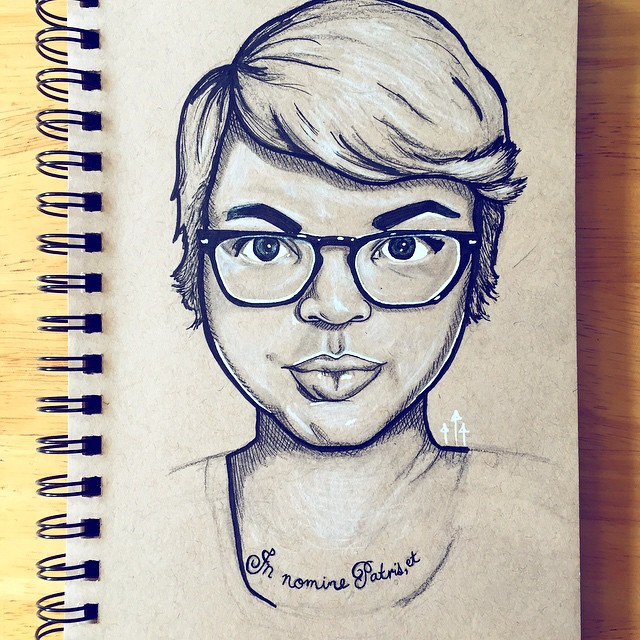 In nomine Patris, et